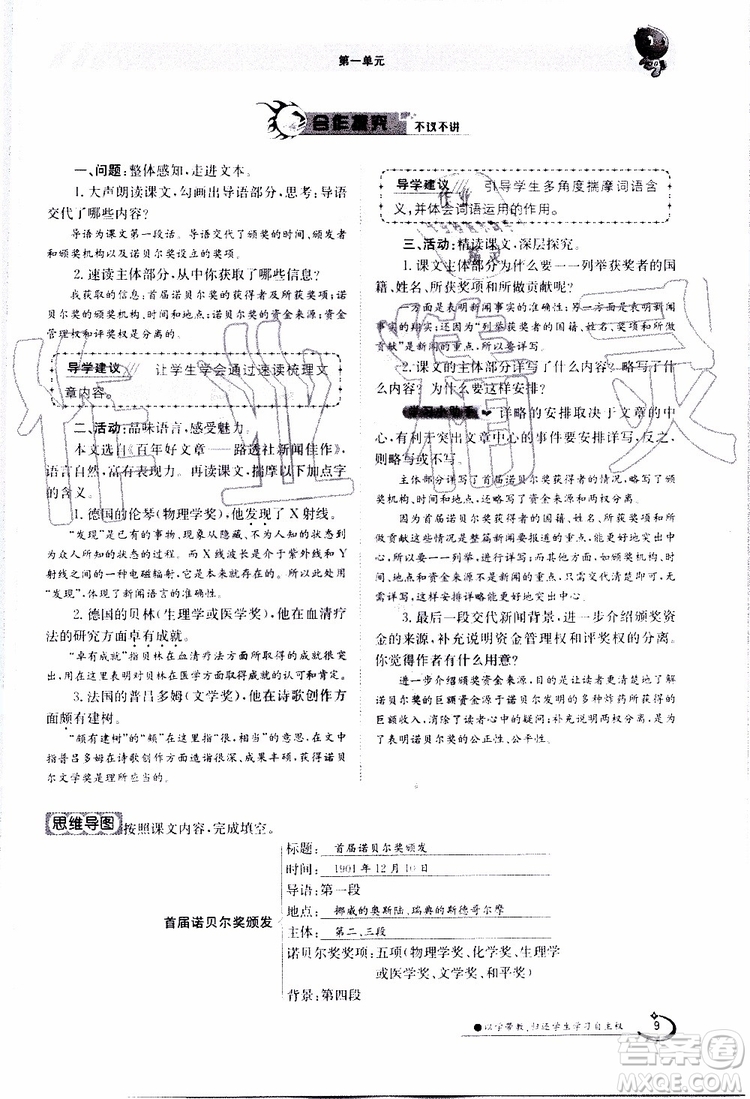 第一单元
合作探究 不议不讲
一、问题:整体感知,走进文本。
1. 大声朗读课文,勾画出导语部分,思考:导语
交代了哪些内容?
导语为课文第一段话。导语交代了颁奖的时间、颁发者
和颁奖机构以及诺贝尔奖设立的奖项。
2. 速读主体部分,从中你获取了哪些信息?
我获取的信息:首届诺贝尔奖的获得者及所获奖项;诺
贝尔奖的颁奖机构、时间和地点;诺贝尔奖的资金来源;资金
管理权和评奖权是分离的。
导学建议 让学生学会通过速读梳理文
章内容。
二、活动:品味语言,感受魅力。
本文选自《百年好文章——路透社新闻佳作》,
语言自然,富有表现力。再读课文,揣摩以下加点字
的含义。
1. 德国的伦琴(物理学奖),他发现了X射线。
“发现”是已有的事物、现象从隐藏的、不为人知的状态到
为众人所知的状态的过程。而X线波长是介于紫外线和Y
射线之间的一种电磁辐射,不为当时的人们所知。所以用
“发现”,体现了新闻语言的准确性。
2. 德国的贝林(生理学或医学奖),他在血清疗
法的研究方面卓有成就。
“卓有成就”指贝林在血清疗法方面有突出的成就。用
在这里表明对贝林在医学方面所做贡献的认可和肯定。
3. 法国的普吕多姆(文学奖),他在诗歌创作方
面颇有建树。
“颇有建树”的“颇”在这里有“相当”的意思,在文中
指普吕多姆在诗歌创作方面有很深、很高的成果,所以获得诺
贝尔文学奖是理所应当的。
导学建议 引导学生多角度揣摩词语含
义,并体会词语运用的作用。
三、活动:精读课文,深层探究。
1. 课文主体部分为什么要一一列举获奖者的国
籍、姓名、所获奖项和所做贡献呢?
一方面是表明新闻事实的准确性;另一方面是表明新闻
事实的翔实;还因为“列举获奖者的国籍、姓名、奖项和所做
贡献”是本则新闻的重点,所以要详写。
2. 课文的主体部分详写了什么内容?略写了什
么内容?为什么要这样安排?
学习小助手 详略的安排取决于文章的中
心,有利于突出文章中心的事件要详写,反之,
则略写或不写。
主体部分详写了首届诺贝尔奖获得者的情况,略写了颁
奖机构、时间和地点,还略写了资金来源和管理。
因为首届诺贝尔奖获得者的国籍、姓名、奖项和所做
贡献的情况是整篇新闻的重点,能更好地突出文章中心,
所以要一一列举,进行详细介绍。而诸如颁奖机构、时
间和地点及资金来源等不是新闻的重点,应适当简写。
无需详写。这样安排详略得当,能更好地突出中心。
3. 最后一段交代新闻背景,进一步介绍颁奖资
金的来源,补充说明资金管理权和评奖权的分离。
你觉得作者有什么用意?
进一步介绍颁奖资金来源,目的是让读者更加详细地了解
诺贝尔奖的巨额资金源于诺贝尔发明的多种炸药所获得的
巨额利润,以解决了读者心中的疑问;补充说明两权分离,是为
了表明诺贝尔奖的公正性、公平性。
思维导图 按照课文内容,完成填空。
首届诺贝尔奖颁发
标题:首届诺贝尔奖颁发
时间:1901年12月10日
导语:第一段
地点:挪威的奥斯陆、瑞典的斯德哥尔摩
主体:第二、三段
诺贝尔奖奖项:五项(物理学奖、化学奖、生理学
或医学奖、文学奖、和平奖)
背景:第四段
●以学带教,归还学生学习自主权
9
作业精灵
答案圈
MXQE.COM